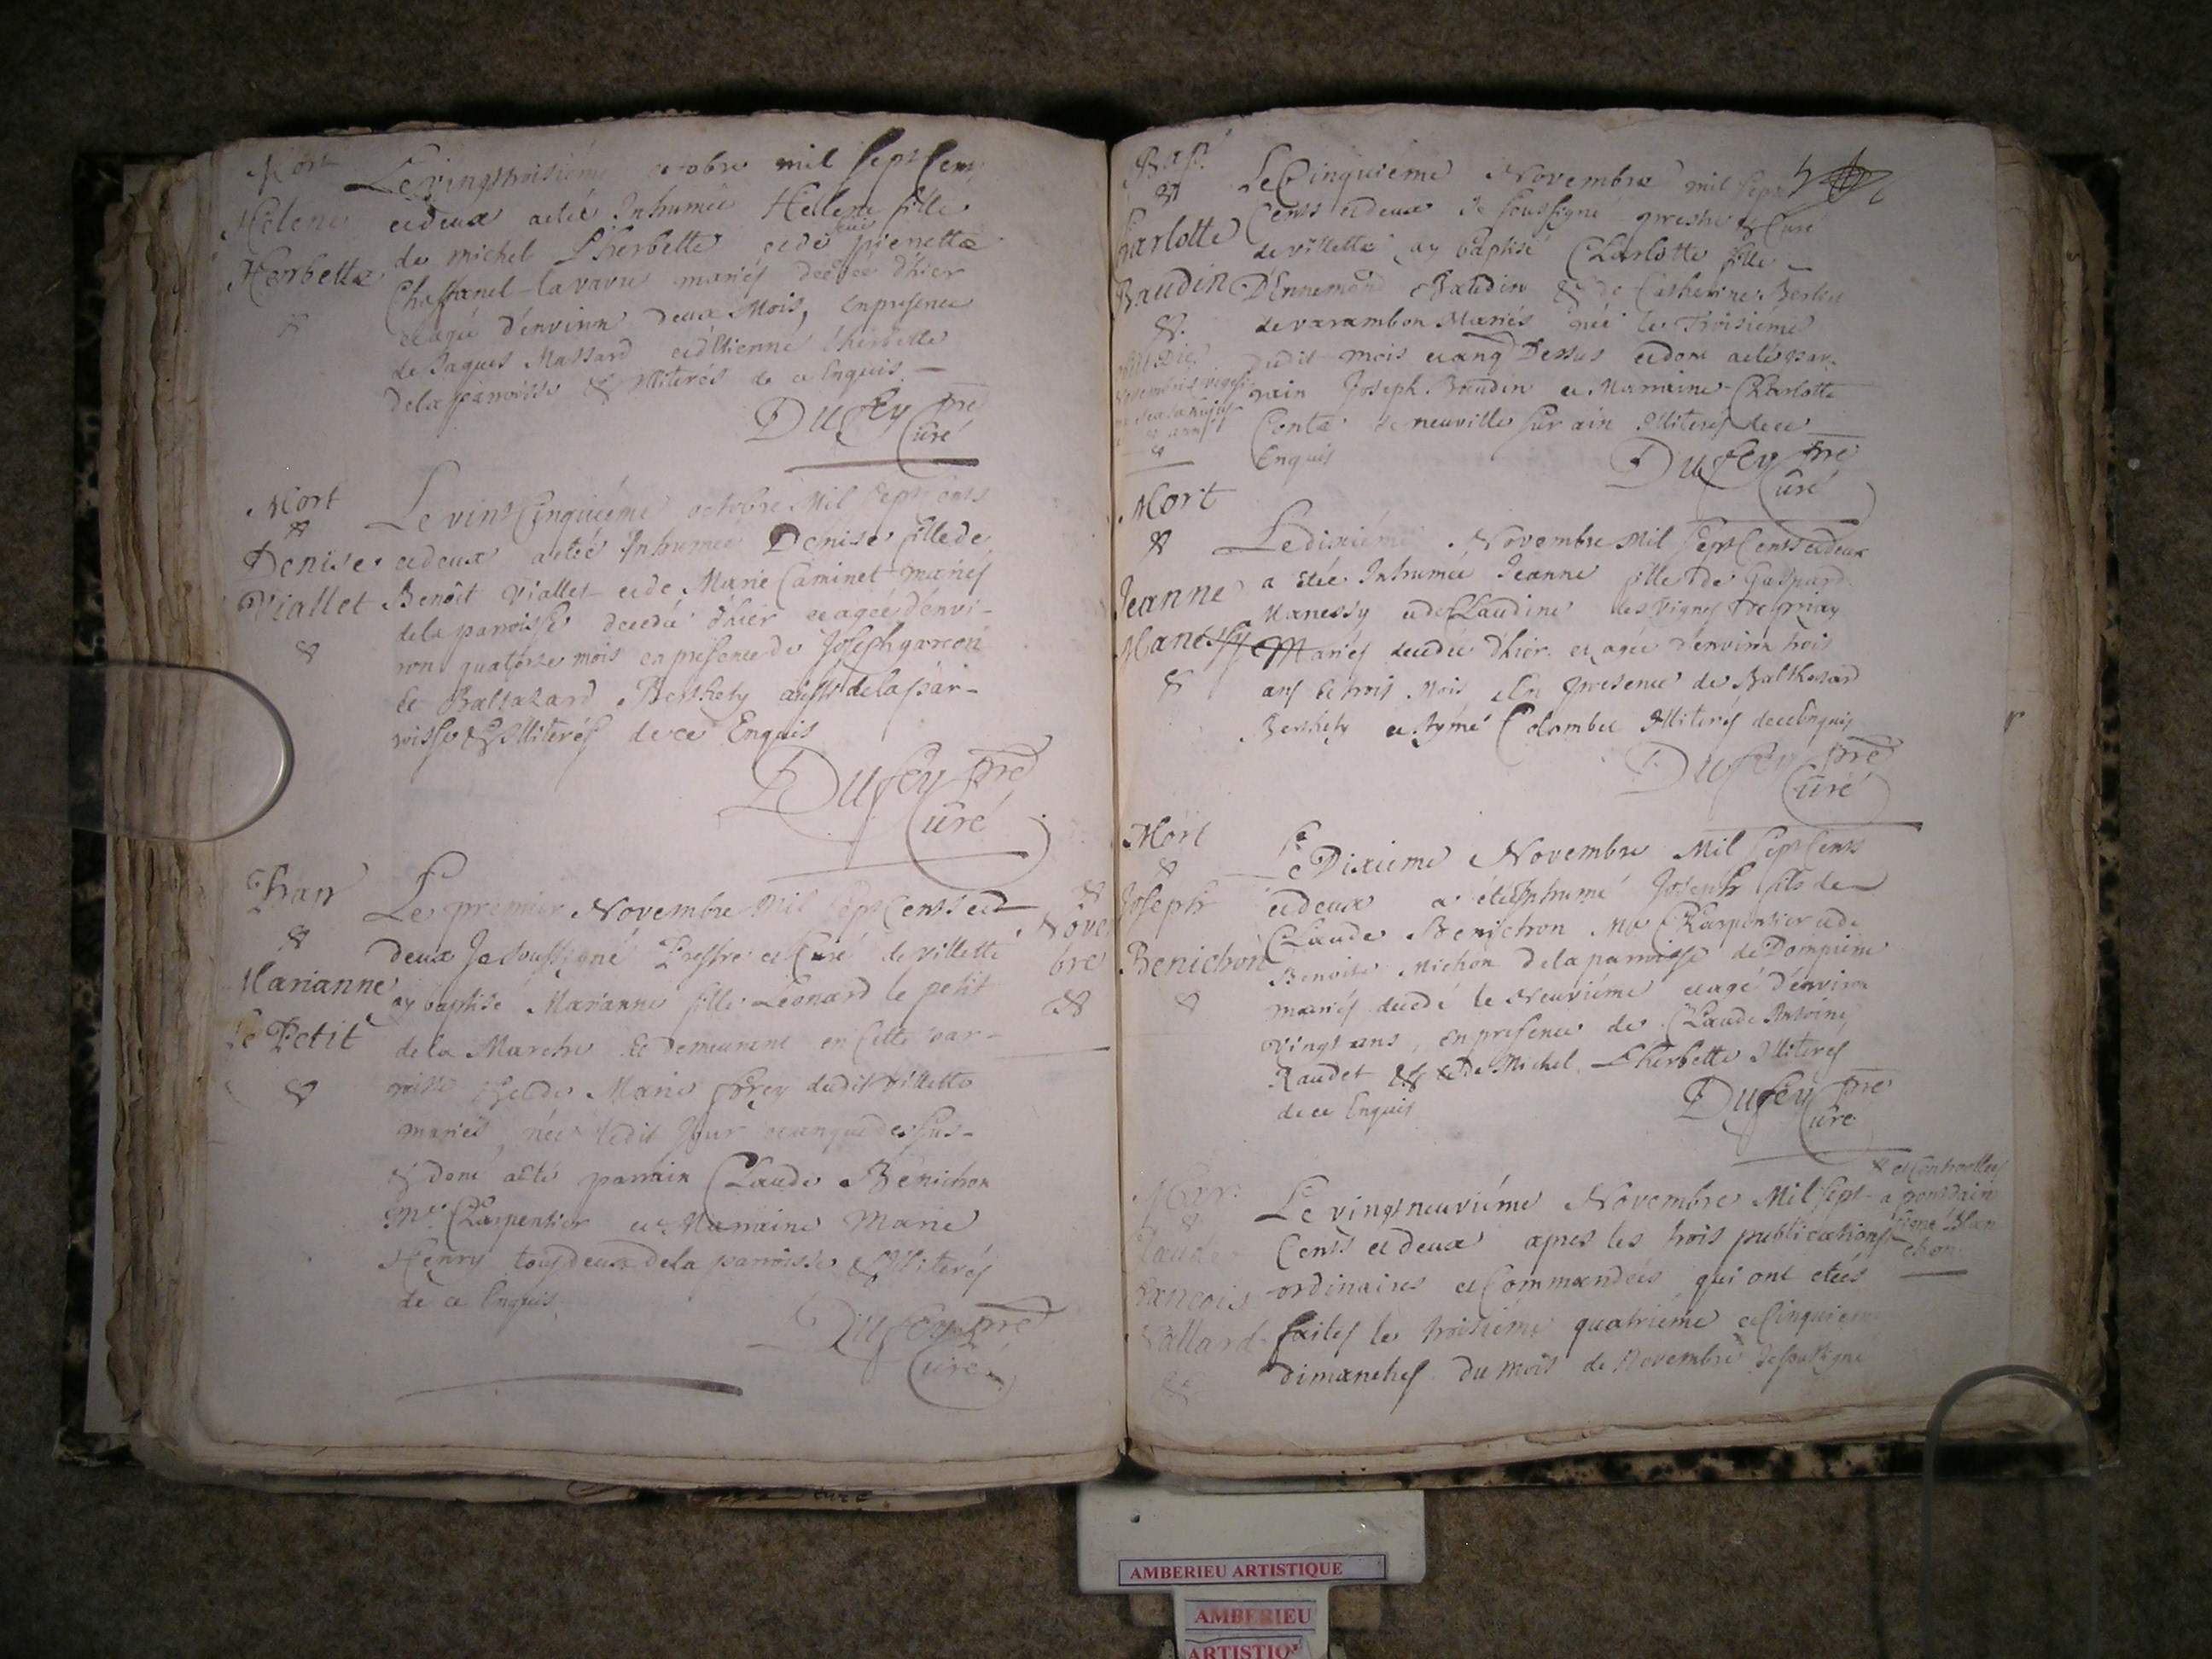 Mort
Helene
Herbette
Le vingtroisiéme octobre mil sept cens
et deux a eté Inhumée Hellene fille
de michel Lherbette et de feue pierrette
Chassanel lavavre mariés deédée d'hier
et agée d'environ deux Mois, en presence
de Jaques Massard et d'Etienne Lherbette
de la paroisse & Illiterés de ce Enquis
Dufey pre
Curé
Mort
Denise
Viallet
Le vint Cinquiéme octobre Mil sept Cens
et deux a eté Inhumée Denise fille de
Benoît Viallet et de Marie Caminet mariés
de la paroisse decedée d'hier et agée d'envi-
ron quatorse mois en presence de Joseph garcon
Et Baltazard Berthety aussi de la par-
roisse & Illiterés de ce Enquis
Dufey pre
Curé
Marianne
Le Petit
Novem
bre
Le premier Novembre Mil sept Cens et
deux Je soussigné Prestre et Curé de villette
ay baptisé Marianne fille Léonard le petit
de la Marche Et demeurant en Cette par-
roisse Et de Marie dudit villette
mariés née ledit Jour et an que dessus
& dont a eté parrain Claude Bénichon
Me Charpentier et Marraine Marie
Henry tous deux de la parroisse & Illiterés
de ce Enquis
Dufey pre
Curé
Bap.
&
Charlotte
Baudin
&
Le Cinquiéme Novembre mil sept
Cens et deux Je soussigné prestre & Curé
de villette ay baptisé Charlotte fille
D'Ennemond Baudin & de Catherine
de varambon Mariés née le Troisiéme
dudit mois et anq Dessus et dont a eté par-
rain Joseph Baudin et Marraine Charlotte
Conte de neuville sur ain Illiterés de ce
Enquis
Dufey pre
Curé
Mort
Jeanne
Manessy
Le dixiéme Novembre Mil sept Cens et deux
a etée Inhumée Jeanne fille de Gaspard
Manessy et de Claudine des vignes de priay
Mariés decedée d'hier et agée d'environ trois
ans Et trois Mois En presence de Balthesard
Berthety et Aymé Colombet Illiterés de ce Enquis
Dufey pre
Curé
Mort
Joseph
Benichon
Le Dixieme Novembre Mil sept Cens
et deux a eté Inhumé Joseph fils de
Claude Benichon Me Charpentier et de
Benoite Michon de la parroisse de Dompierre
mariés decedé le Neuviéme et agé d'environ
vingt ans, en presence de Claude Antoine
Raudet & de Michel Lherbette Illiterés
de ce Enquis
Dufey pre
Curé
Claude
francois
Vallard
Le vingtneuviéme Novembre Mil sept
Cens et deux apres les trois publications
ordinaires et Commandées qui ont etées
faites les troisiéme quatriéme et Cinquiéme
dimanches du mois de Novembre Je soussigné
et Controllees
a pontdain
signé
AMBERIEU ARTISTIQUE
AMBERIEU
ARTISTIQ